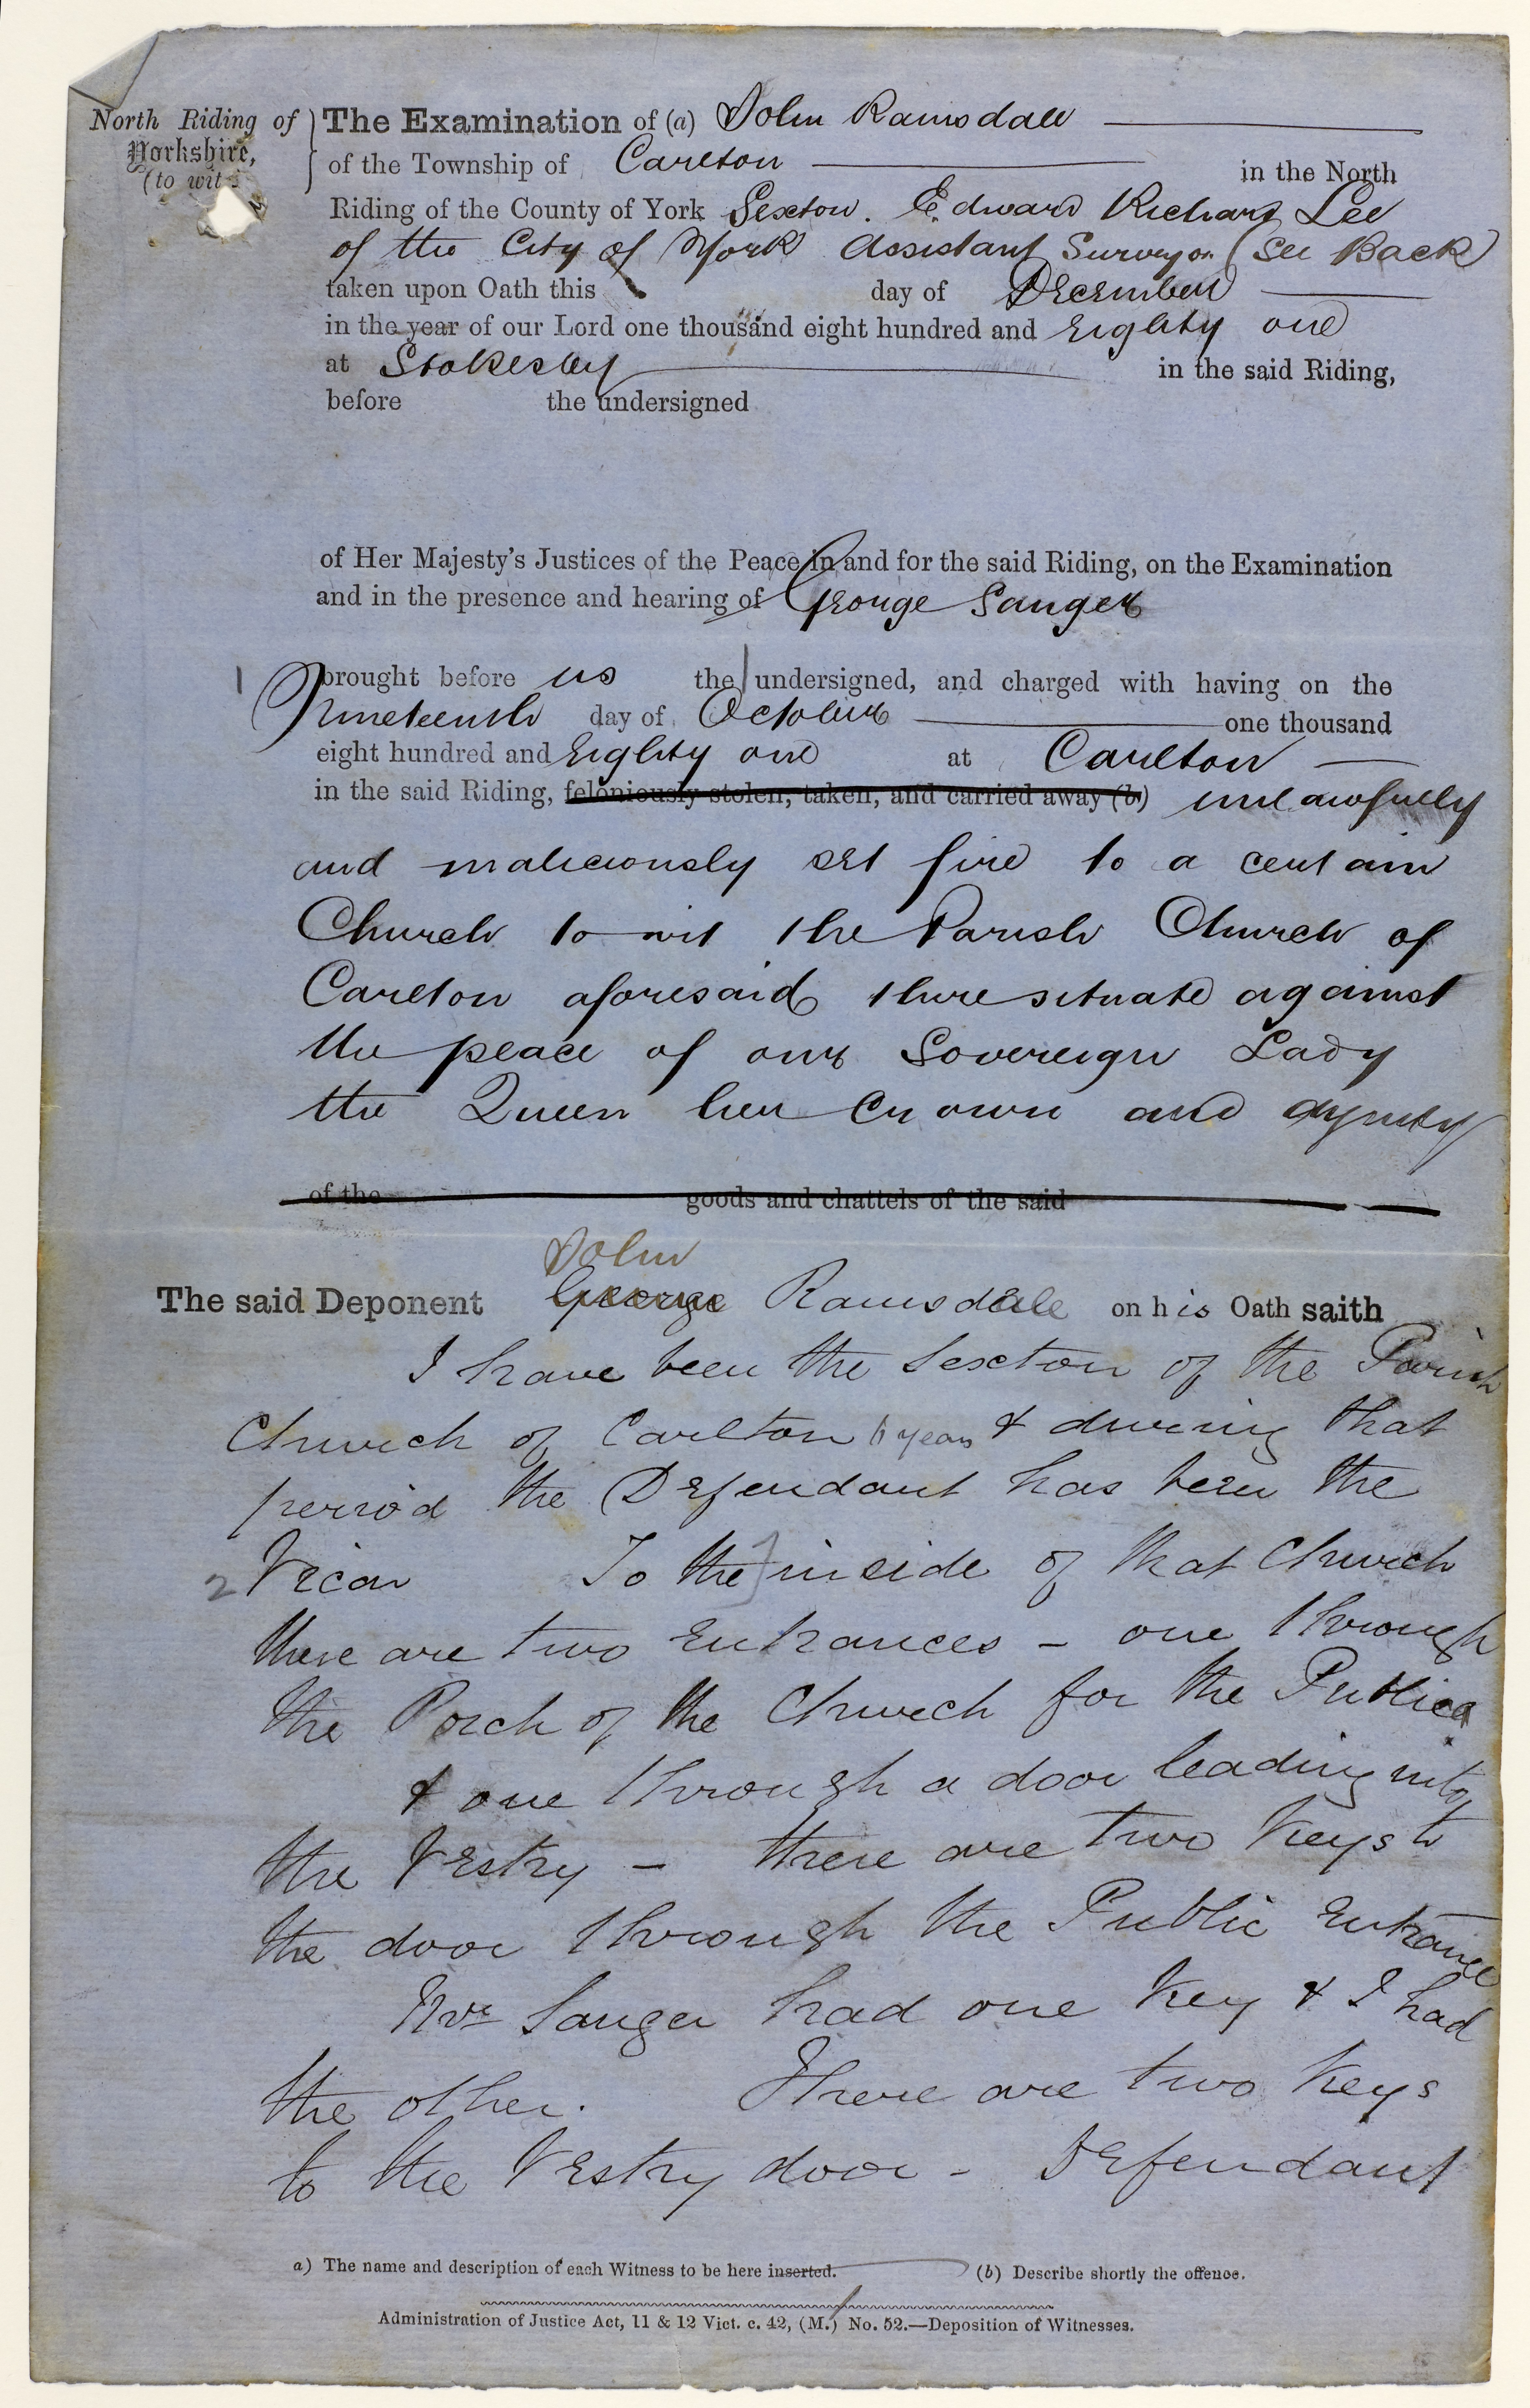 North Riding of } The Examination of (a) John Ramsdale
Yorkshire,
(to wit
of the Township of Carlton in the North
Riding of the County of York Sexton. Edward Richard Lee
of the City of York Assistant Surveyor (See Back
taken upon Oath this day of December
in the year of our Lord one thousand eight hundred and Eighty one
at Stokesley in the said Riding,
before the undersigned
of Her Majesty's Justices of the Peace in and for the said Riding, on the Examination
and in the presence and hearing of George Sanger
1 brought before us the undersigned, and charged with having on the
Nineteenth day of October one thousand
eight hundred and Eighty one at Carlton
in the said Riding, feloniously stolen, taken, and carried away (b) unlawfully
and maliciously set fire to a certain
Church to wit the Parish Church of
Carlton aforesaid there situate against
the peace of our Sovereign Lady
the Queen her Crown and dignity
of the goods and chattels of the said
John
The said Deponent George Ramsdale on his Oath saith
I have been the Sexton of the Parish
Church of Carlton years & during that
period the Defendant has been the
2 Vicar To the inside of that Church
there are two Entrances - one through
the Porch of the Church for the Public
& one through a door leading into
the Vestry - there are two Keys to
the door through the Public Entrance
Mr Sanger had one Key & I had
the other. There are two Keys
to the Vestry door - Defendant
a) The name and description of each Witness to be here inserted. (b) Describe shortly the offence.
Administration of Justice Act, 11 & 12 Vict. c. 42, (M.) No. 52.—Deposition of Witnesses.